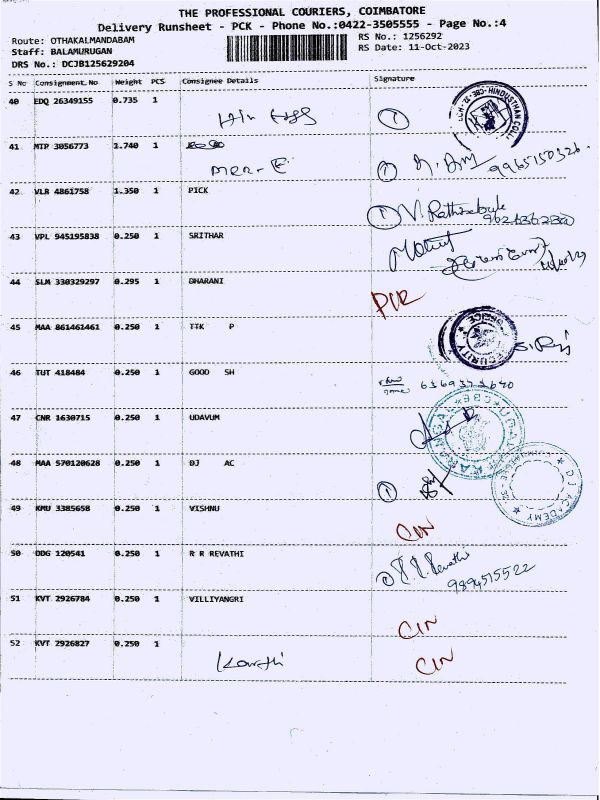 THE PROFESSIONAL COURIERS, COIMBATORE
Delivery Runsheet - PCK - Phone No.:0422-3505555 - Page No.:4
Route: OTHAKALMANDABAM
Staff: BALAMURUGAN
DRS No.: DCJB125629204
RS No.: 1256292
RS Date: 11-Oct-2023
S No Consignment No Weight PCS Consignee Details Signature
40 EDQ 26349155 0.735 1
HINDUSTHAN COLL
41 MTP 3056773 1.740 1
9965150326
42 VLR 4861758 1.350 1 PICK
43 VPL 945195838 0.250 1 SRITHAR
44 SLM 330329297 0.295 1 DHARANI
45 MAA 861461461 0.250 1 TTK P
SECURITY OFFICE
46 TUT 418484 0.250 1 GOOD SH
47 CNR 1630715 0.250 1 UDAVUM
48 MAA 570120628 0.250 1 DJ AC
DJ ACADEMY
49 KMU 3385658 0.250 1 VISHNU
CIN
50 DDG 120541 0.250 1 R R REVATHI
R.R. Revathi
9894515522
51 KVT 2926784 0.250 1 VILLIYANGRI
CIN
52 KVT 2926827 0.250 1
CIN